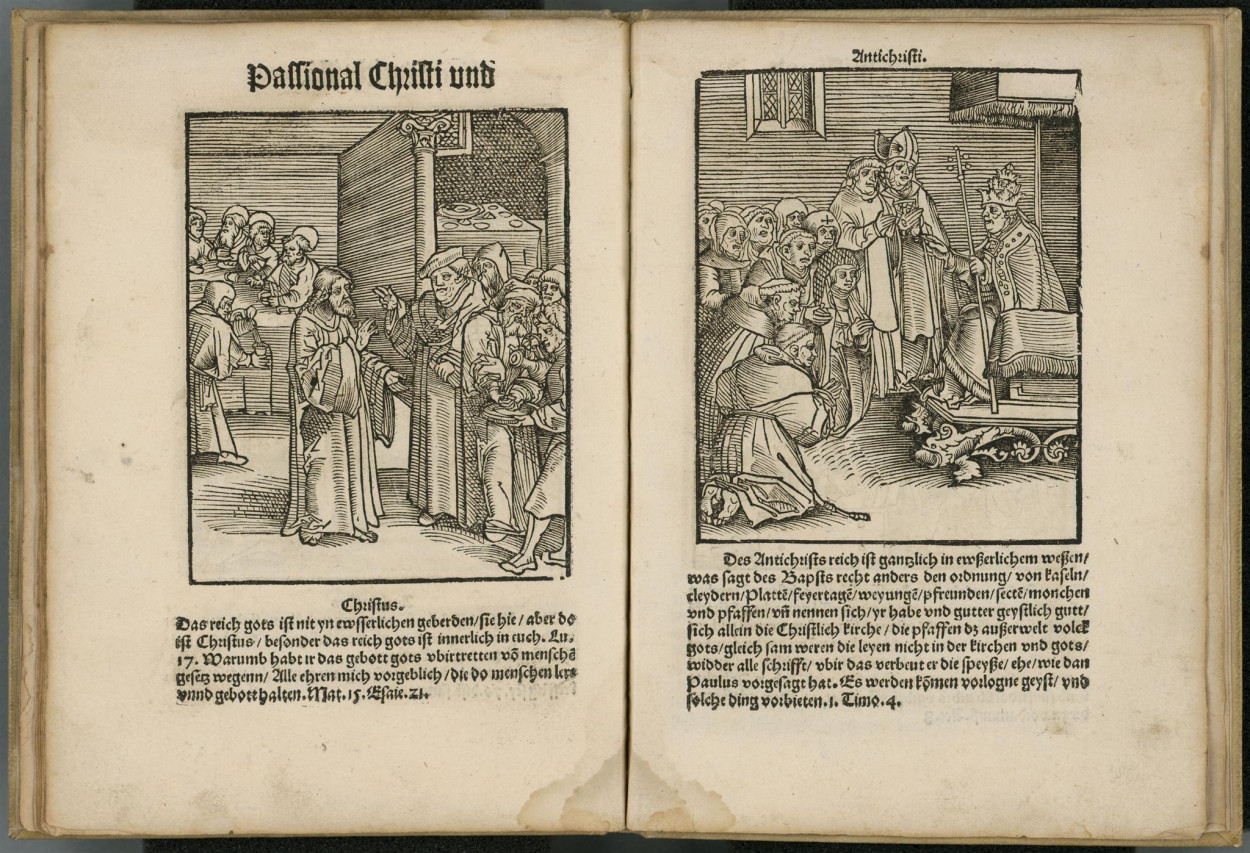 Passional Christi und
Christus.
Das reich gots ist nit yn ewsserlichen geberden/ sie hie/ aber do
ist Christus/ besonder das reich gots ist innerlich in euch. Lu.
17. Warumb habt ir das gebott gots vbirtretten võ menschẽ
gesetz wegenn/ Alle ehren mich vorgeblich/ die do menschen lere
vnnd gebott halten. Mat. 15. Esaie. 21.
Antichristi.
Des Antichrists reich ist gantzlich in ewßerlichem weßen/
was sagt des Bapsts recht anders den ordnung/ von kaseln/
cleydern/ Plattẽ/ feyertagẽ/ weyungẽ/ pfreunden/ sectẽ/ monchen
vnd pfaffen/ vñ nennen sich/ yr habe vnd gutter geystlich gutt/
sich allein die Christlich kirche/ die pfaffen dz außerwelt volck
gots/ gleich sam weren die leyen nicht in der kirchen vnd gots/
widder alle schrifft/ vbir das verbeut er die speyße/ ehe/ wie dan
Paulus vorgesagt hat. Es werden kõmen vorlogne geyst/ vnd
solche ding vorbieten. 1. Timo. 4.